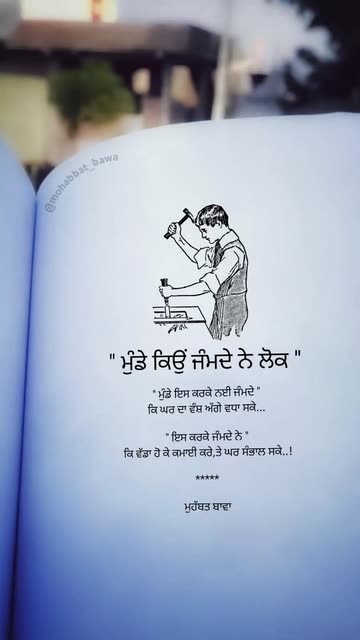 @mohabbat_bawa
" ਮੁੰਡੇ ਕਿਉਂ ਜੰਮਦੇ ਨੇ ਲੋਕ "
" ਮੁੰਡੇ ਇਸ ਕਰਕੇ ਨਈ ਜੰਮਦੇ "
ਕਿ ਘਰ ਦਾ ਵੰਸ਼ ਅੱਗੇ ਵਧਾ ਸਕੇ...
" ਇਸ ਕਰਕੇ ਜੰਮਦੇ ਨੇ "
ਕਿ ਵੱਡਾ ਹੋ ਕੇ ਕਮਾਈ ਕਰੇ,ਤੇ ਘਰ ਸੰਭਾਲ ਸਕੇ..!
*****
ਮੁਹੱਬਤ ਬਾਵਾ